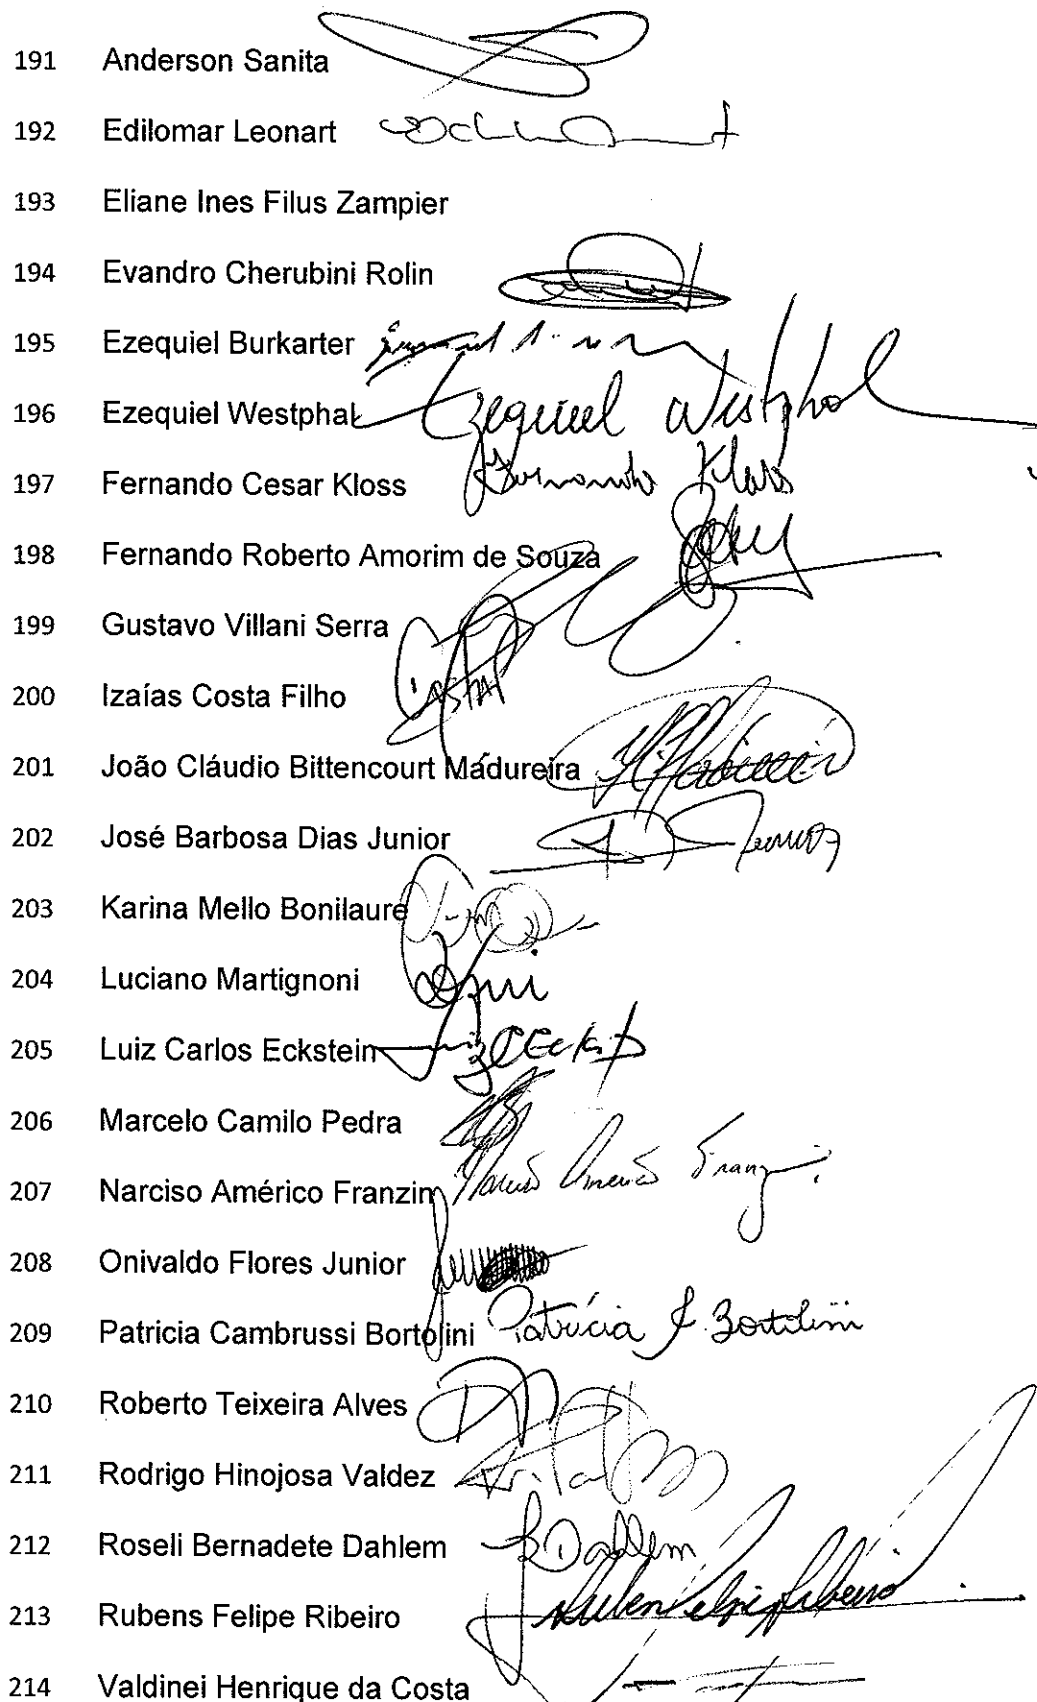 191 Anderson Sanita
192 Edilomar Leonart
193 Eliane Ines Filus Zampier
194 Evandro Cherubini Rolin
195 Ezequiel Burkarter
196 Ezequiel Westphal Ezequiel Westphal
197 Fernando Cesar Kloss Fernando Kloss
198 Fernando Roberto Amorim de Souza
199 Gustavo Villani Serra
200 Izaías Costa Filho
201 João Cláudio Bittencourt Madureira
202 José Barbosa Dias Junior
203 Karina Mello Bonilaure
204 Luciano Martignoni
205 Luiz Carlos Eckstein
206 Marcelo Camilo Pedra
207 Narciso Américo Franzin
208 Onivaldo Flores Junior
209 Patricia Cambrussi Bortolini Patrícia
210 Roberto Teixeira Alves
211 Rodrigo Hinojosa Valdez
212 Roseli Bernadete Dahlem Dahlem
213 Rubens Felipe Ribeiro
214 Valdinei Henrique da Costa